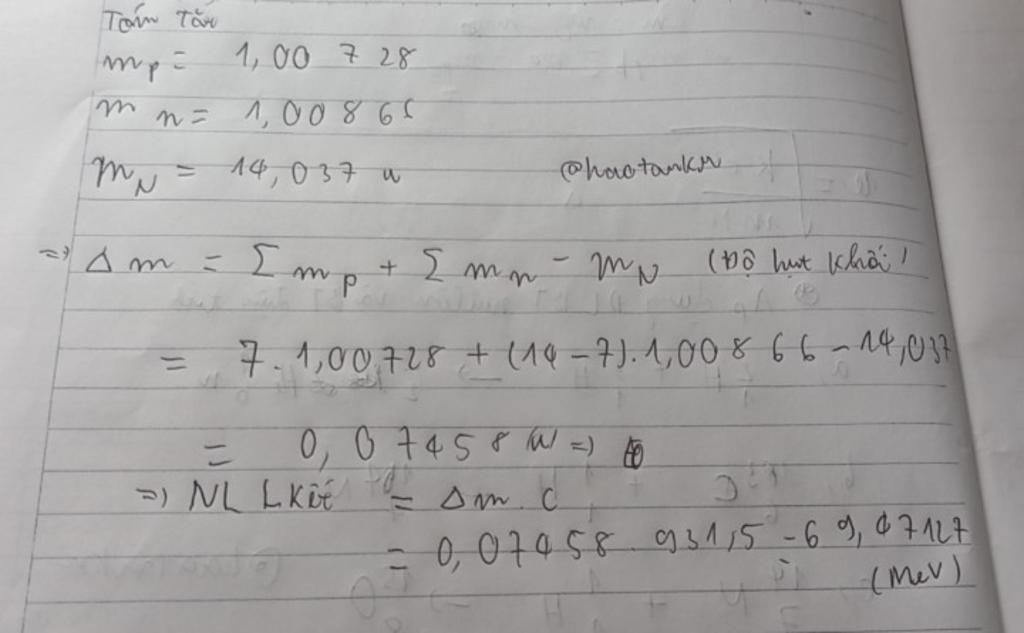 Tóm Tắt
mp = 1,00 728
m n = 1,00866
mN = 14,037 u @haotankn
=> Δm = Σmp + Σmn - mN (Độ hụt khối)
= 7 . 1,00728 + (14-7) . 1,00866 - 14,037
= 0,07458 (u) =>
=> NL Lkết = Δm . C
= 0,07458 . 931,5 = 69,47127
(MeV)